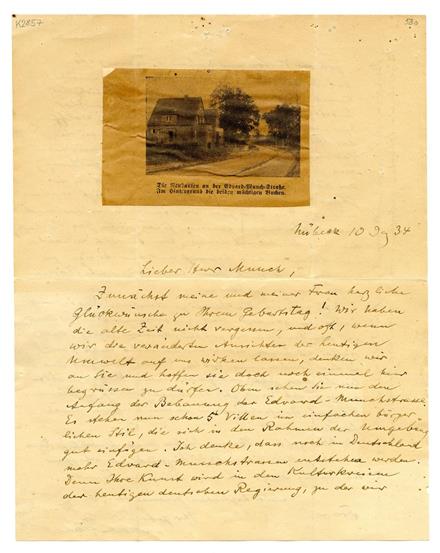 K2857
530
Die Neubauten an der Edvard-Munch-Straße.
Im Hintergrund die beiden mächtigen Buchen.
Lübeck 10 Dez 34
Lieber Herr Munch,
Zunächst meine und meiner Frau herzliche
Glückwünsche zu Ihrem Geburtstag! Wir haben
die alte Zeit nicht vergessen, und oft, wenn
wir die veränderten Ansichten der heutigen
Umwelt auf uns wirken lassen, denken wir
an Sie und hoffen sie doch noch einmal hier
begrüssen zu dürfen. Oben sehen Sie nun den
Anfang der Bebauung der Edvard-Munchstrasse.
Es stehen nun schon 5 Villen im einfachen bürger
lichen Stil, die sich in den Rahmen der Umgebung
gut einfügen. Ich denke, dass noch in Deutschland
mehr Edvard-Munchstrassen entstehen werden.
Denn Ihre Kunst wird in den Kulturkreisen
der heutigen deutschen Regierung, zu der wir